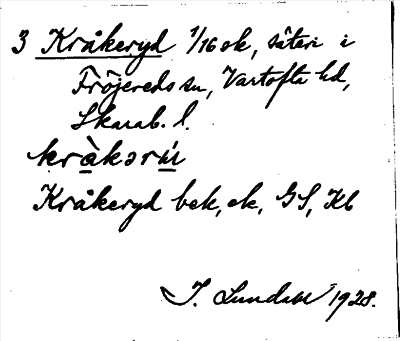 3 Kråkeryd 1/16 ek, säteri i
Fröjereds sn, Vartofta hd,
Skarab. l.
kràkərú
Kråkeryd bek, ek, GS, Kb
I. Lundahl 1928.